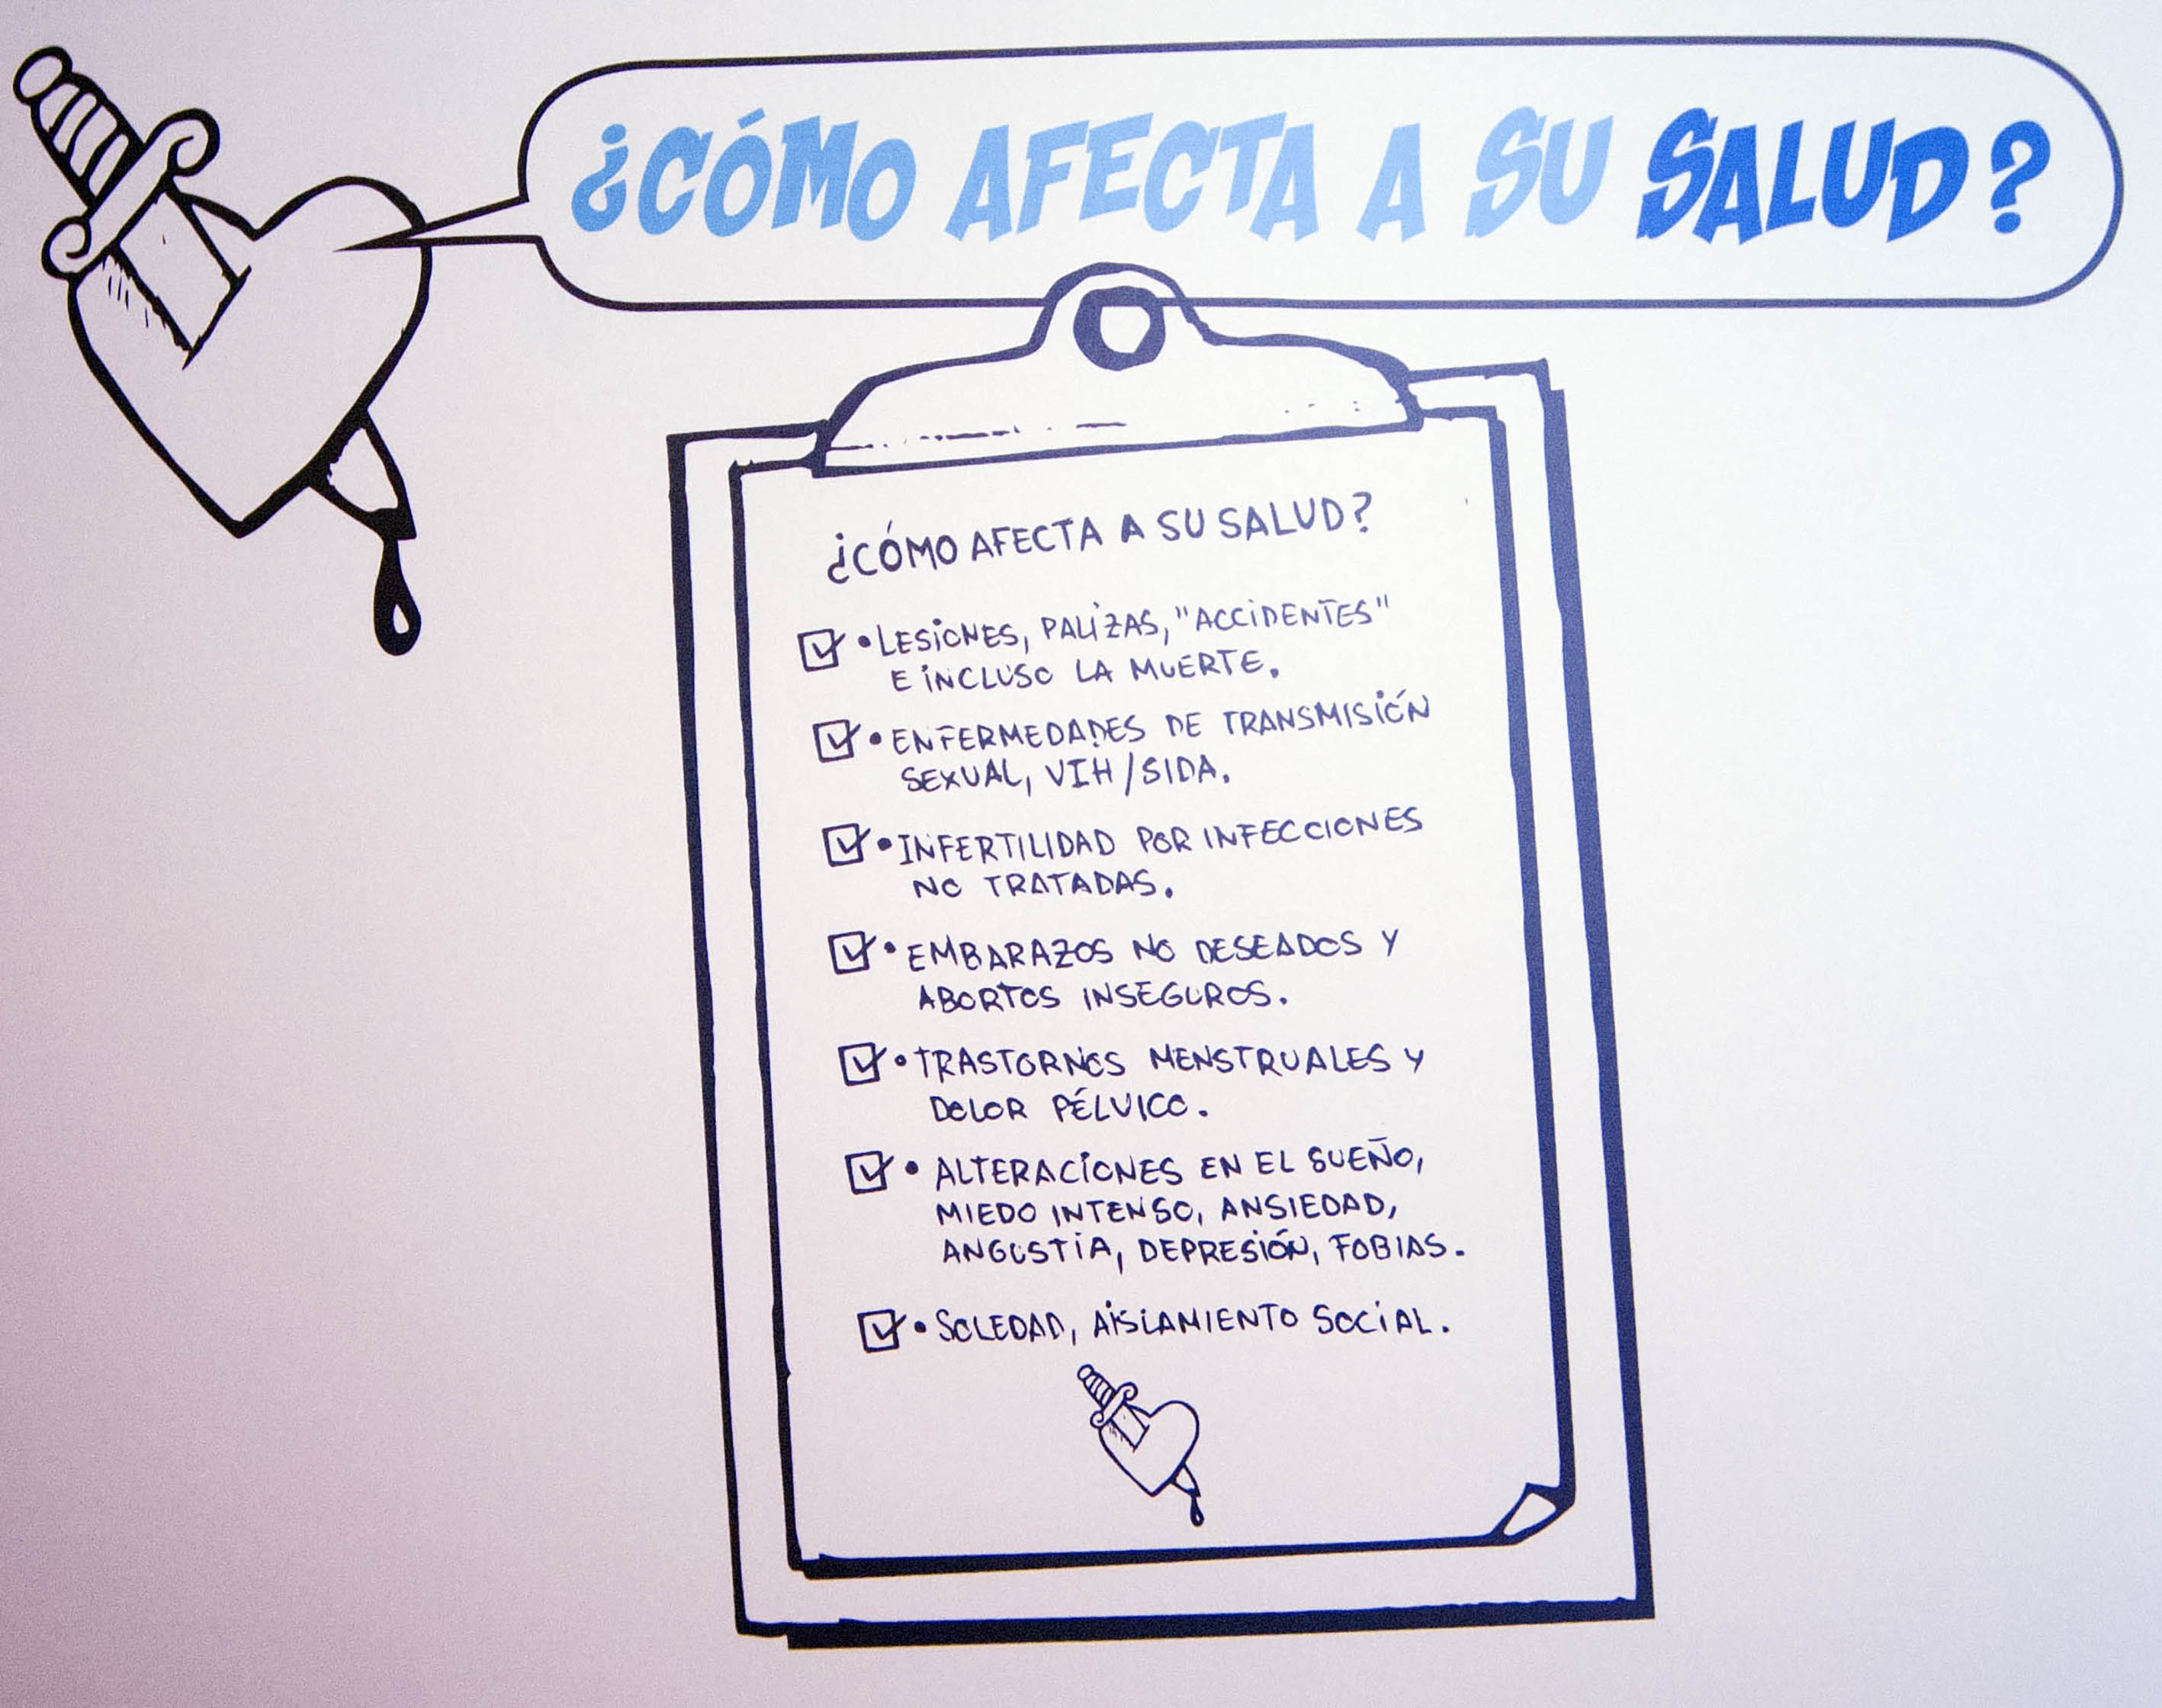 ¿CÓMO AFECTA A SU SALUD?
¿CÓMO AFECTA A SU SALUD?
• LESIONES, PALIZAS, "ACCIDENTES"
E INCLUSO LA MUERTE.
• ENFERMEDADES DE TRANSMISIÓN
SEXUAL, VIH/SIDA.
• INFERTILIDAD POR INFECCIONES
NO TRATADAS.
• EMBARAZOS NO DESEADOS Y
ABORTOS INSEGUROS.
• TRASTORNOS MENSTRUALES Y
DOLOR PÉLVICO.
• ALTERACIONES EN EL SUEÑO,
MIEDO INTENSO, ANSIEDAD,
ANGUSTIA, DEPRESIÓN, FOBIAS.
• SOLEDAD, AISLAMIENTO SOCIAL.